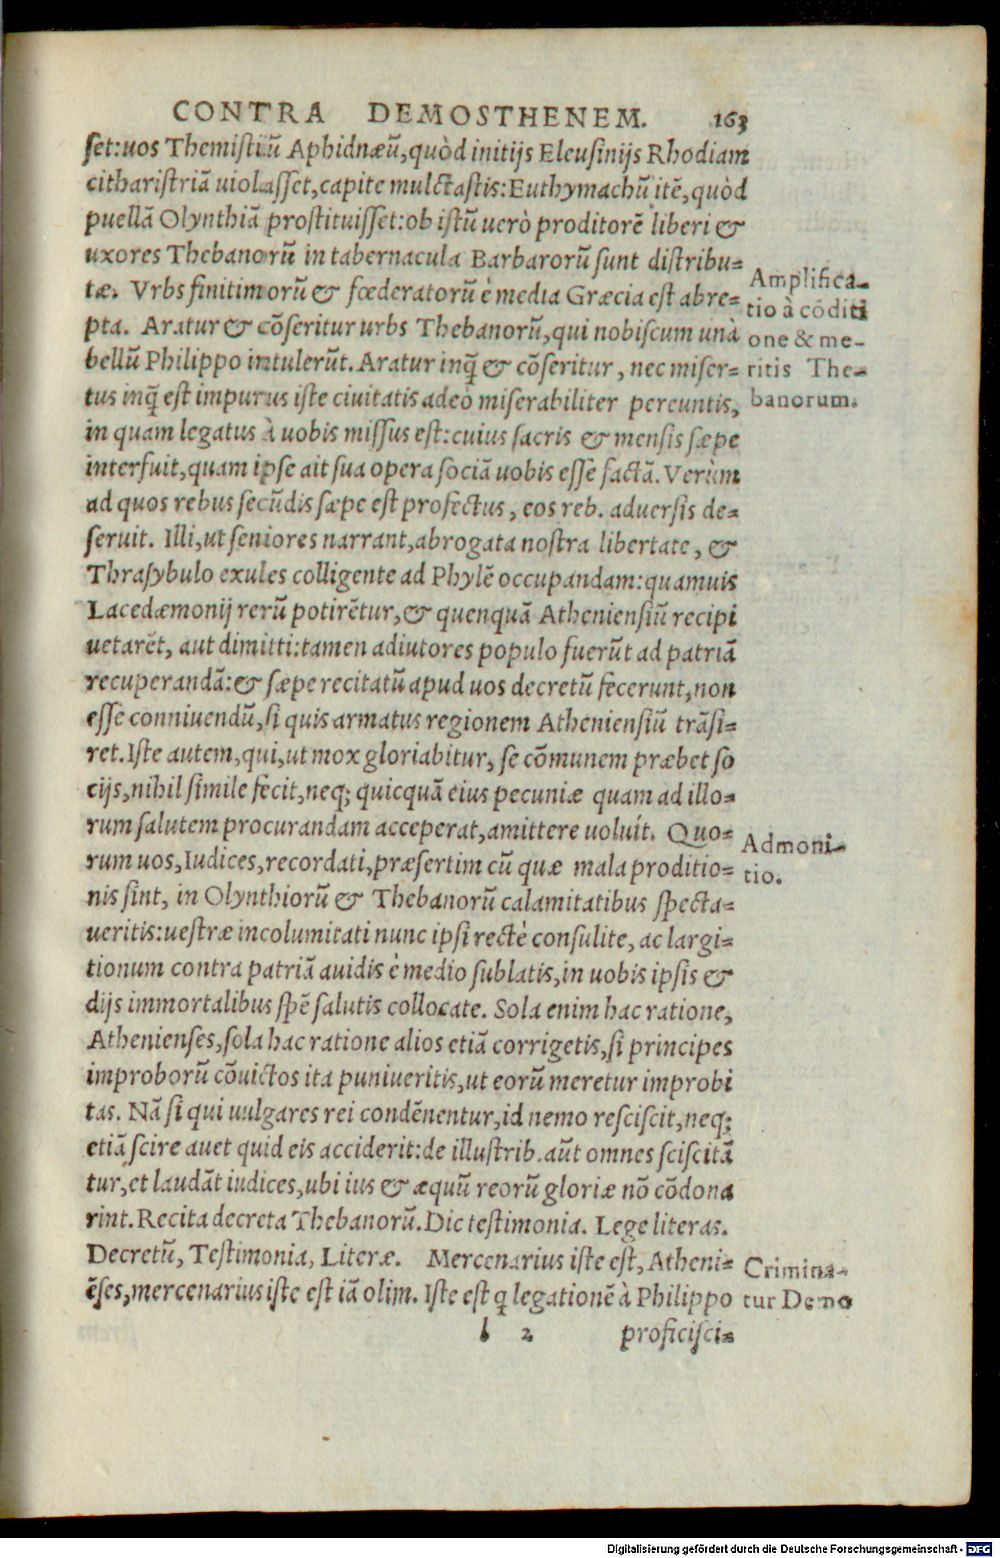 CONTRA DEMOSTHENEM. 163
set:uos Themistiū Aphidnæū,quòd initijs Eleusinijs Rhodiam
citharistriā uiolasset,capite mulctastis:Euthymachū itē,quòd
puellā Olynthiā prostituisset:ob istū uerò proditorē liberi &
uxores Thebanorū in tabernacula Barbarorū sunt distribu=
tæ. Vrbs finitimorū & fœderatorū è media Græcia est abre=
pta. Aratur & cōseritur urbs Thebanorū,qui nobiscum unà
bellū Philippo intulerūt. Aratur inq̃ & cōseritur, nec miser=
tus inq̃ est impurus iste ciuitatis adeò miserabiliter pereuntis,
in quam legatus à uobis missus est:cuius sacris & mensis sæpe
interfuit,quam ipse ait sua opera sociā uobis esse factā. Verùm
ad quos rebus secūdis sæpe est profectus, eos reb. aduersis de=
seruit. Illi,ut seniores narrant,abrogata nostra libertate, &
Thrasybulo exules colligente ad Phylē occupandam:quamuis
Lacedæmonij rerū potirētur,& quenquā Atheniensiū recipi
uetarēt, aut dimitti:tamen adiutores populo fuerūt ad patriā
recuperandā:& sæpe recitatū apud uos decretū fecerunt,non
esse conniuendū,si quis armatus regionem Atheniensiū trāsi=
ret.Iste autem,qui,ut mox gloriabitur, se cōmunem præbet so
cijs,nihil simile fecit,neq; quicquā eius pecuniæ quam ad illo=
rum salutem procurandam acceperat,amittere uoluit. Quo=
rum uos,Iudices,recordati,præsertim cū quæ mala proditio=
nis sint, in Olynthiorū & Thebanorū calamitatibus specta=
ueritis:uestræ incolumitati nunc ipsi rectè consulite, ac largi=
tionum contra patriā auidis è medio sublatis,in uobis ipsis &
dijs immortalibus spē salutis collocate. Sola enim hac ratione,
Athenienses,sola hac ratione alios etiā corrigetis,si principes
improborū cōuictos ita puniueritis,ut eorū meretur improbi
tas. Nā si qui uulgares rei condēnentur,id nemo resciscit,neq;
etiā scire auet quid eis acciderit:de illustrib. aūt omnes sciscitā
tur,et laudāt iudices,ubi ius & æquū reorū gloriæ nō cōdona
rint.Recita decreta Thebanorū.Dic testimonia. Lege literas.
Decretū, Testimonia, Literæ. Mercenarius iste est, Atheni=
ēses,mercenarius iste est iā olim. Iste est q̃ legationē à Philippo
l 2 proficisci=
Amplifica-
tio à cōditi
one & me-
ritis The-
banorum.
Admoni-
tio.
Crimina-
tur Demo
Digitalisierung gefördert durch die Deutsche Forschungsgemeinschaft - DFG